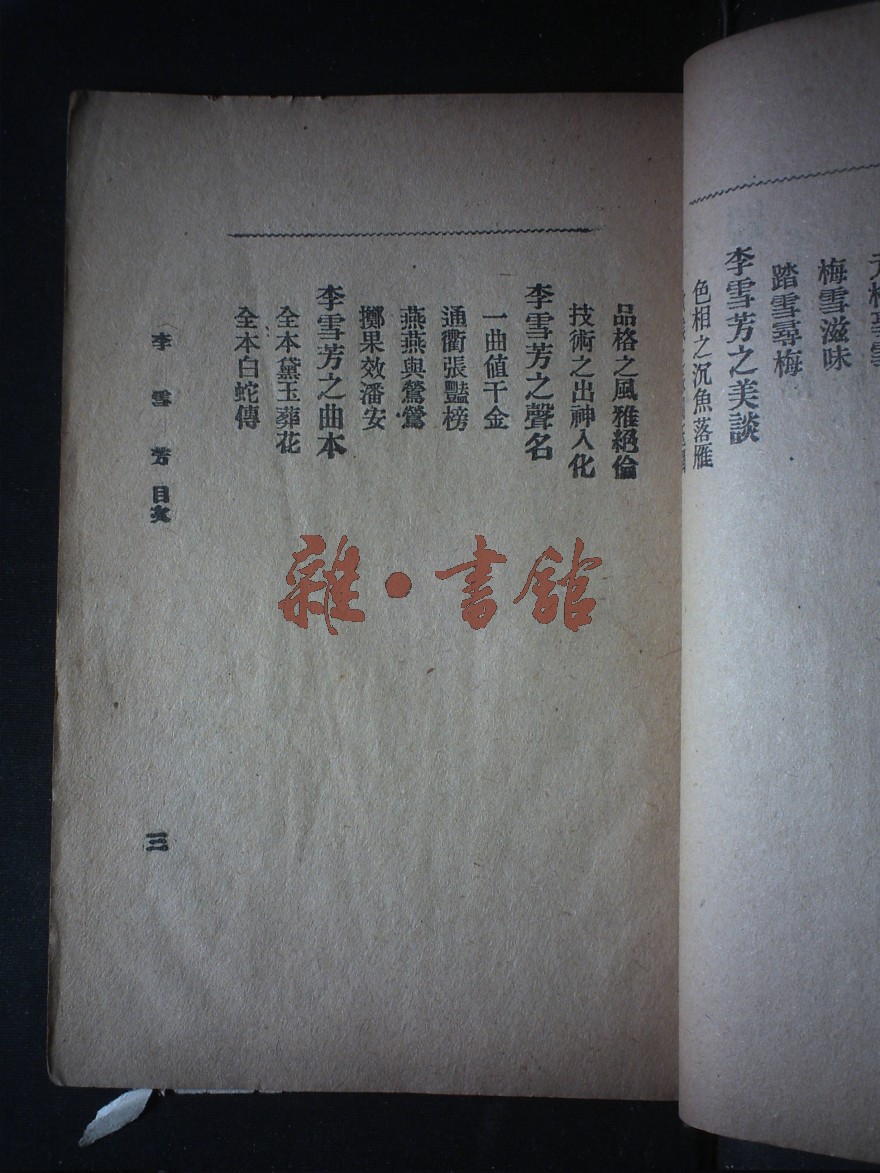 梅雪滋味
踏雪尋梅
李雪芳之美談
色相之沉魚落雁
品格之風雅絕倫
技術之出神入化
李雪芳之聲名
一曲値千金
通衢張豔榜
燕燕與鶯鶯
擲果效潘安
李雪芳之曲本
全本黛玉葬花
全本白蛇傳
李雪芳 目次
三
雜·書館